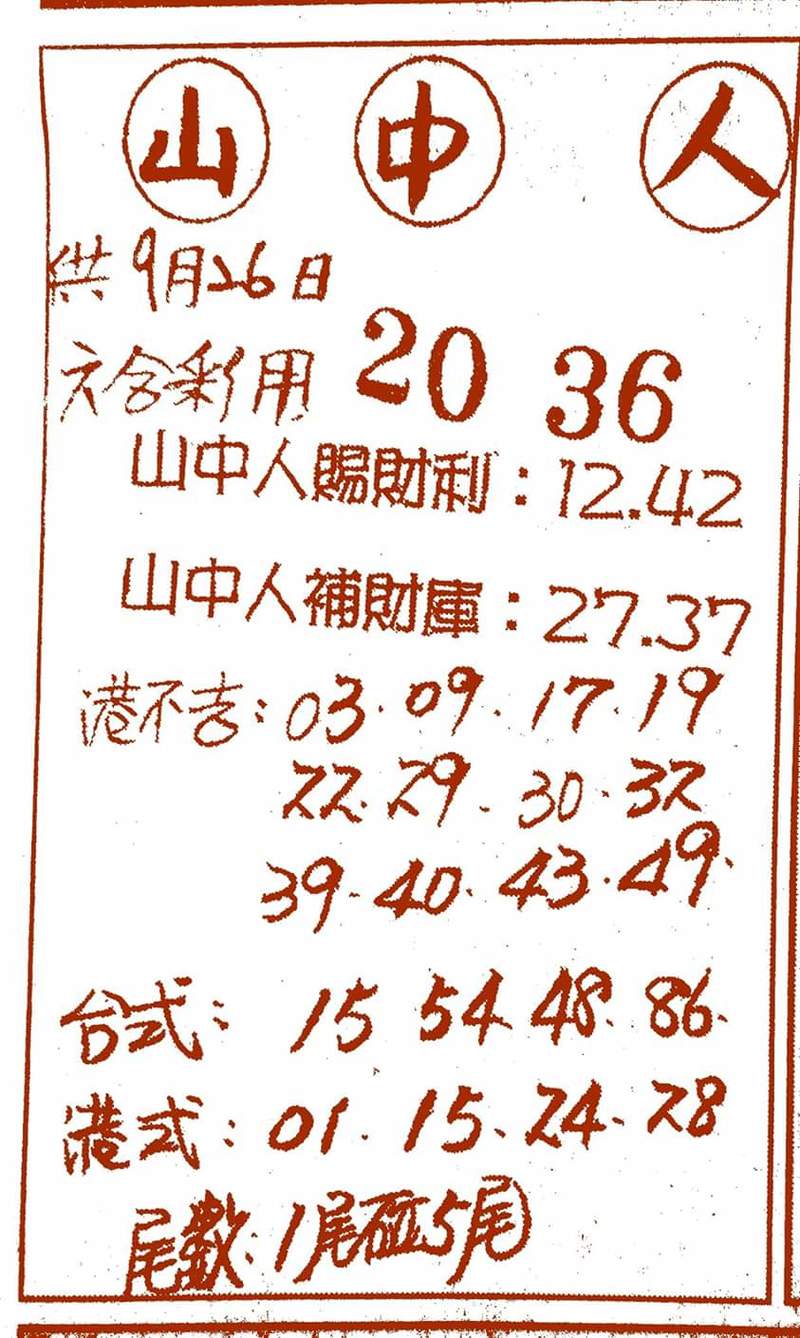 山中人
供9月26日
六合彩用 20 36
山中人賜財利：12.42
山中人補財庫：27.37
港不吉：03.09.17.19
22.29.30.32
39.40.43.49.
台式：15 54.48.86.
港式：01.15.24.28
尾數：1尾碰5尾